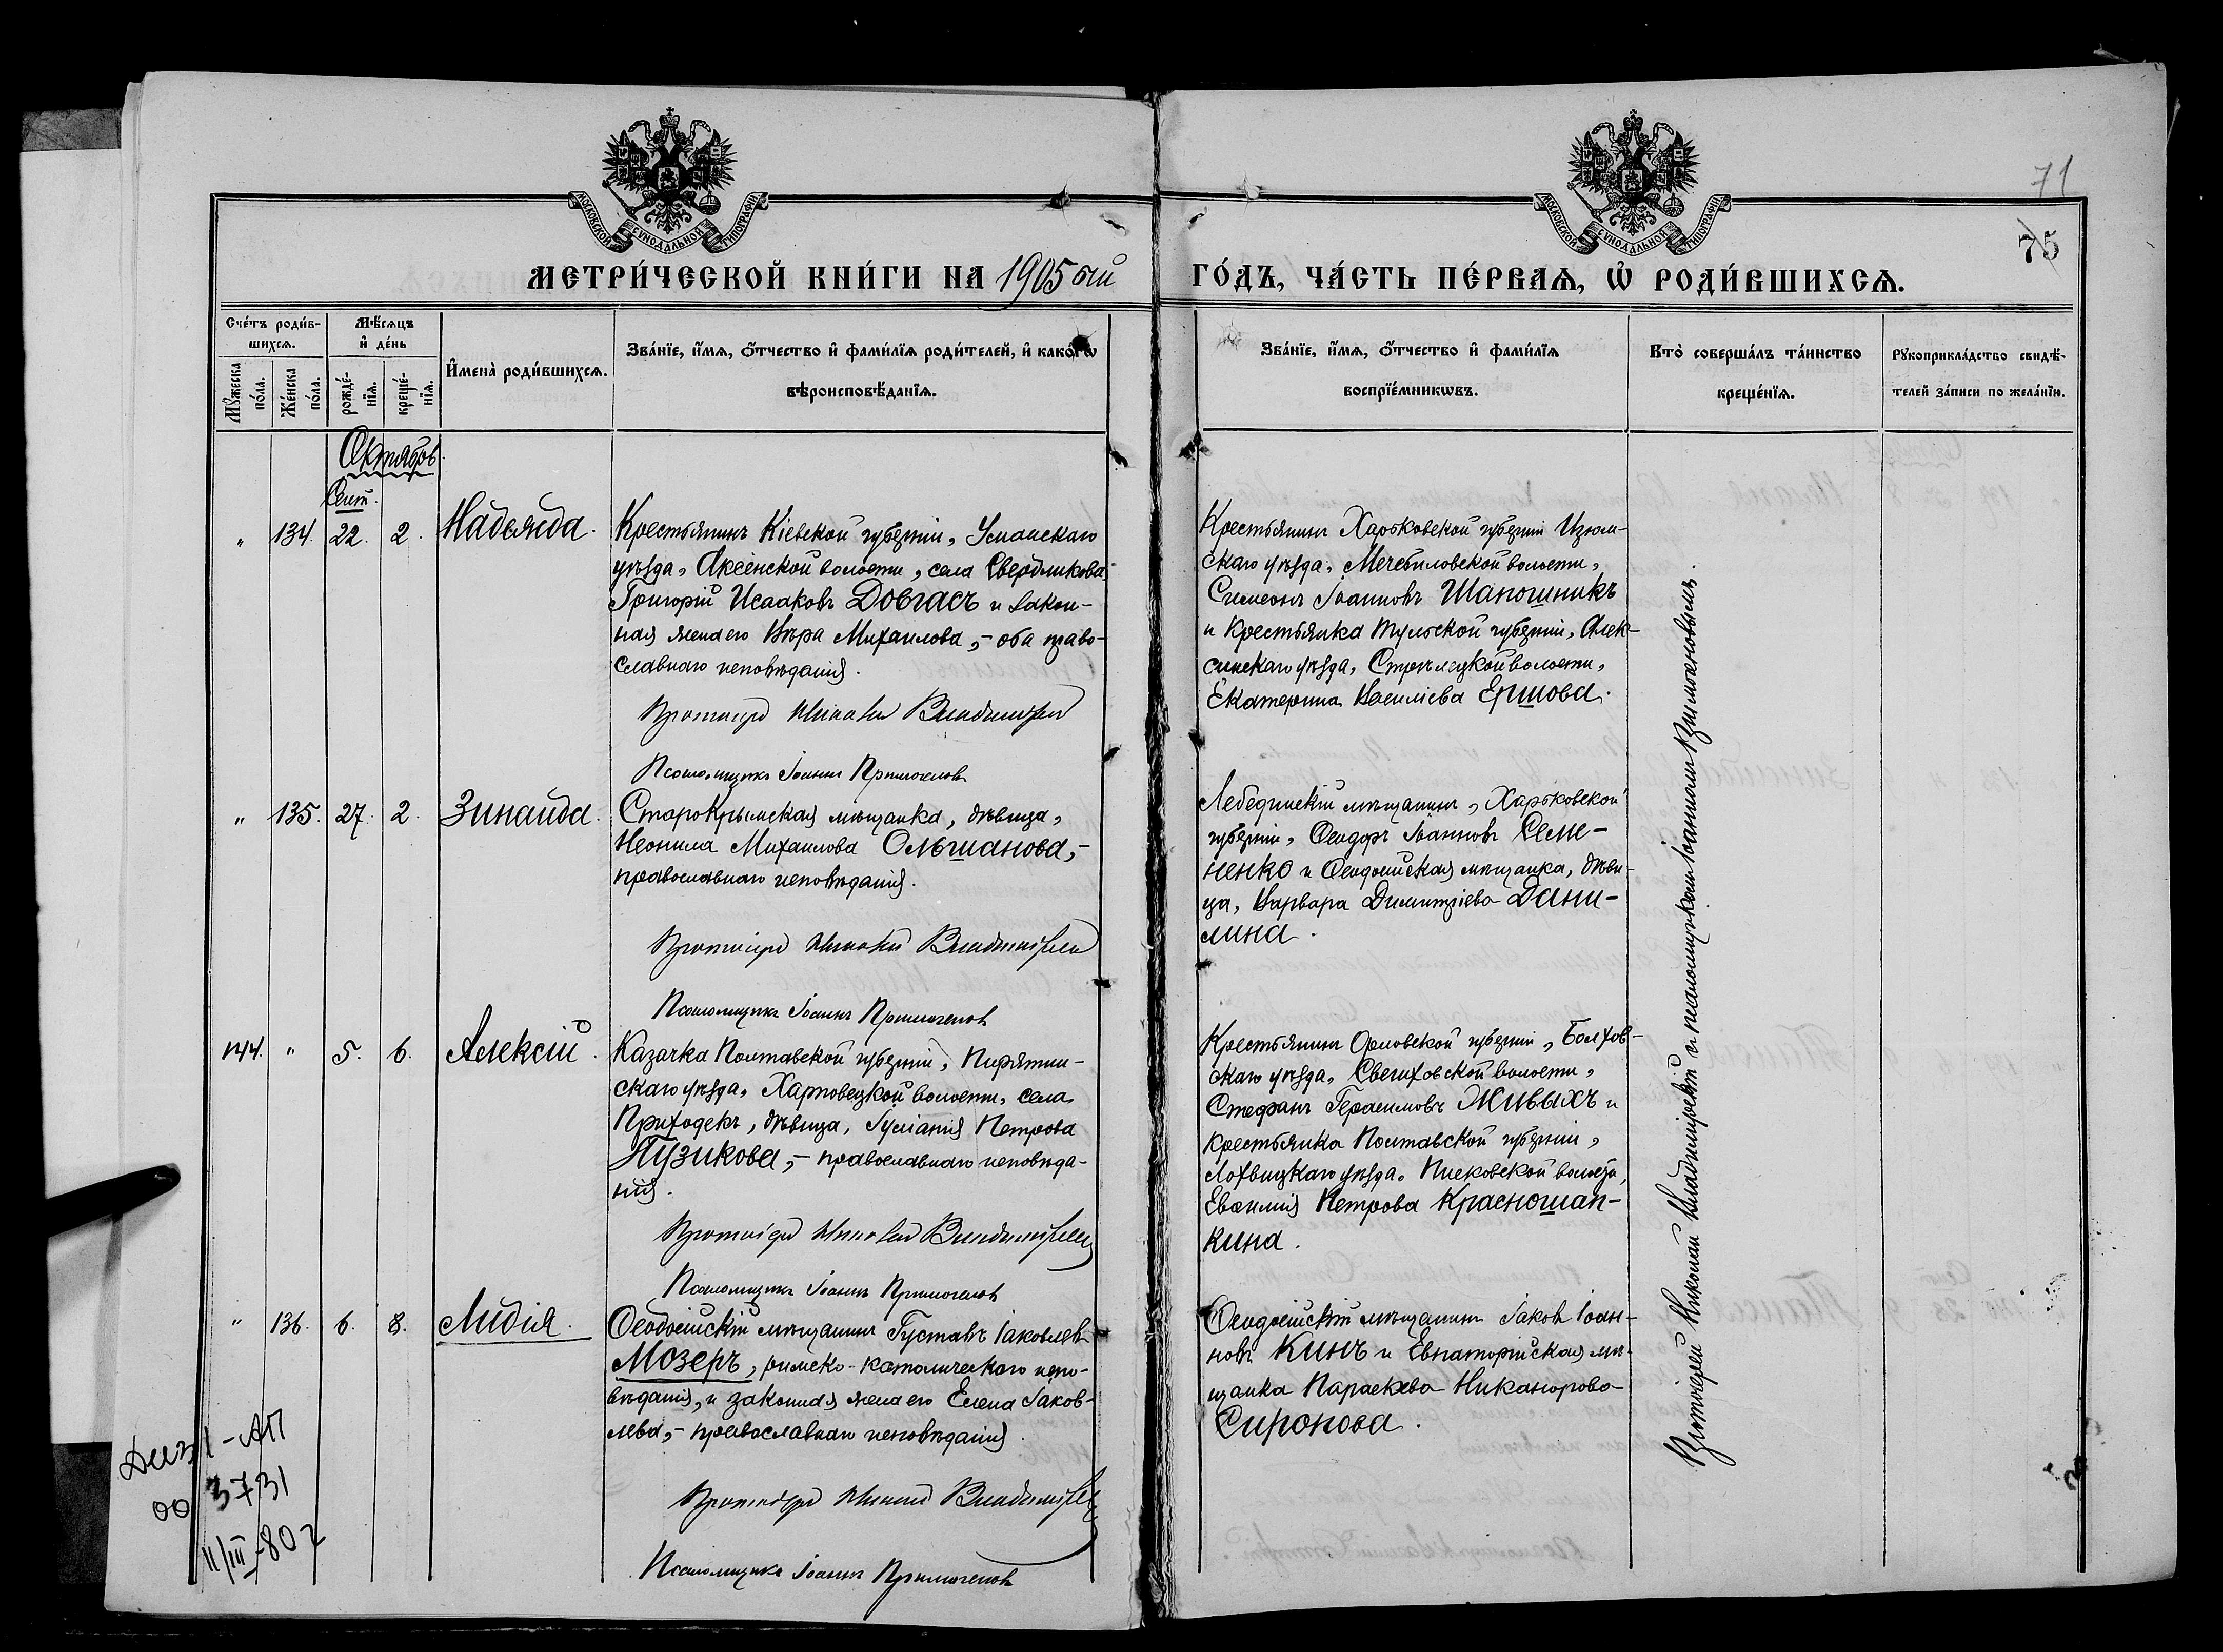 71
75
МОСКОВСКОЙ СѴНОДАЛЬНОЙ ТИПОГРАФІИ
МОСКОВСКОЙ СѴНОДАЛЬНОЙ ТИПОГРАФІИ
МЕТРИ́ЧЕСКОЙ КНИ́ГИ НА 1905 ый
ГО́ДЪ, ЧА́СТЬ ПЕ́РВАѦ, Ѽ РОДИ́ВШИХСѦ.
Сче́тъ роди́в-
шихсѧ.
Мꙋ́жеска по́ла.
Же́нска по́ла.
Мѣ́сѧцъ
и҆ де́нь
рожде́-
нїѧ.
креще́-
нїѧ.
И҆мена̀ роди́вшихсѧ.
Зва́нїе, и҆́мѧ, ѻ҆́тчество и҆ фами́лїѧ роди́телей, и҆ како́гѡ
вѣроисповѣ́данїѧ.
Зва́нїе, и҆́мѧ, ѻ҆́тчество и҆ фами́лїѧ
воспрїе́мникѡвъ.
Кто̀ соверша́лъ та́инство
креще́нїѧ.
Рꙋкоприкла́дство свидѣ́-
телей за́писи по жела́нїю.
Октябрь.
Сент.
" 134. 22. 2. Надежда.
Крестьянинъ Кіевской губерніи, Уманскаго
уѣзда, Аксенской волости, села Свердликова
Григорій Исааковъ Довгасъ и закон-
ная жена его Вѣра Михаилова, – оба право-
славнаго исповѣданія.
Протоіерей Николай Владимірскій
Псаломщикъ Іоаннъ Примогеновъ
Крестьянинъ Харьковской губерніи Изюм-
скаго уѣзда, Мечебиловской волости,
Симеонъ Іоанновъ Шапошникъ
и Крестьянка Тульской губерніи, Алек-
синскаго уѣзда, Стрѣлецкой волости,
Екатерина Василіева Ершова.
" 135. 27. 2. Зинаида.
Старокрымская мѣщанка, дѣвица,
Неонила Михаилова Ольшанова, –
православнаго исповѣданія.
Протоіерей Николай Владимірскій
Псаломщикъ Іоаннъ Примогеновъ
Лебединскій мѣщанинъ, Харьковской
губерніи, Ѳеодоръ Іоанновъ Семе-
ненко и Ѳеодосійская мѣщанка, дѣви-
ца, Варвара Димитріева Дани-
лина.
144. " 5. 6. Алексій.
Казачка Полтавской губерніи, Пирятин-
скаго уѣзда, Харьковецкой волости, села
Приходекъ, дѣвица, Іуліанія Петрова
Пузикова, – православнаго исповѣда-
нія.
Протоіерей Николай Владимірскій
Псаломщикъ Іоаннъ Примогеновъ
Крестьянинъ Орловской губерніи, Болхов-
скаго уѣзда,
волости,
Стефанъ Герасимовъ Живыхъ и
крестьянка Полтавской губерніи,
Лохвицкаго уѣзда, Песковской волости,
Евѳимія Петрова Красношап-
кина.
" 136. 6. 8. Лидія.
Ѳеодосійскій мѣщанинъ Густавъ Іаковлевъ
Мозеръ, римско-католическаго испо-
вѣданія, и законная жена его Елена Іаков-
лева, – православнаго исповѣданія.
Протоіерей Николай Владимірскій
Псаломщикъ Іоаннъ Примогеновъ
Ѳеодосійскій мѣщанинъ Іаковъ Іоан-
новъ Кинъ и Евпаторійская мѣ-
щанка Параскева Никанорова
Сиропова.
Протоіерей Николай Владимірскій и псаломщикъ Іоаннъ Примогеновъ.
3731
11/III-80 г